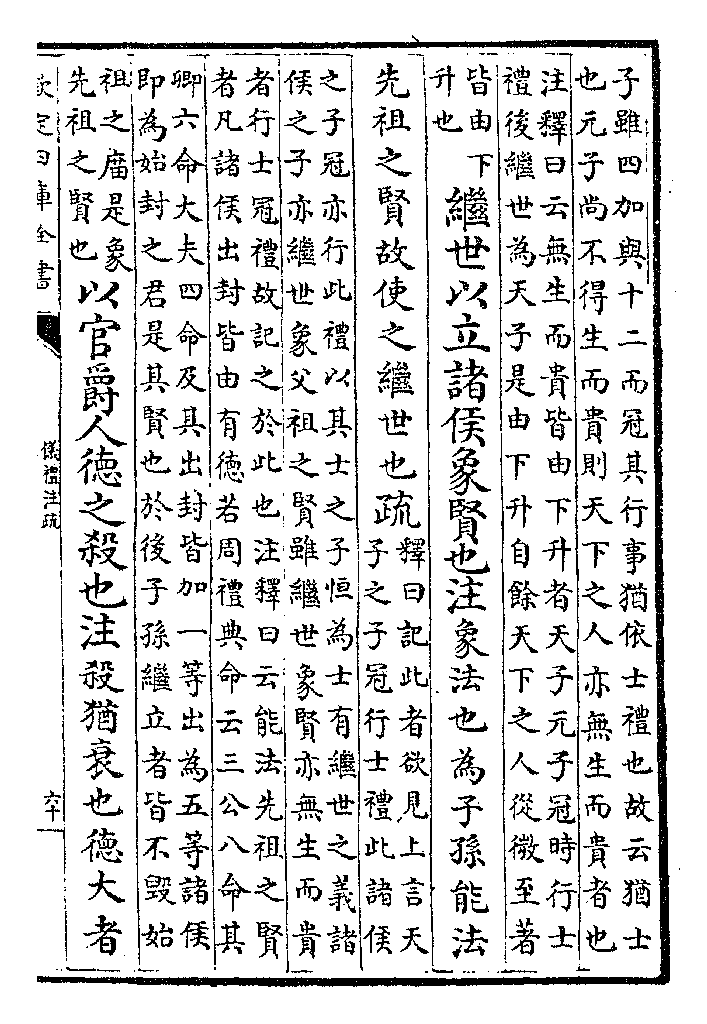 子雖四加與十二而冠其行事猶依士禮也故云猶士
也元子尚不得生而貴則天下之人亦無生而貴者也
注釋曰云無生而貴皆由下升者天子元子冠時行士
禮後繼世為天子是由下升自餘天下之人從微至著
皆由下
升也
繼世以立諸侯象賢也注象法也為子孫能法
先祖之賢故使之繼世也疏
釋曰記此者欲見上言天
子之子冠行士禮此諸侯
之子冠亦行此禮以其士之子恒為士有繼世之義諸
侯之子亦繼世象父祖之賢雖繼世象賢亦無生而貴
者行士冠禮故記之於此也注釋曰云能法先祖之賢
者凡諸侯出封皆由有德若周禮典命云三公八命其
卿六命大夫四命及其出封皆加一等出為五等諸侯
即為始封之君是其賢也於後子孫繼立者皆不毀始
祖之廟是象
先祖之賢也
以官爵人德之殺也注殺猶衰也德大者
欽定四庫全書
儀禮注疏
六十